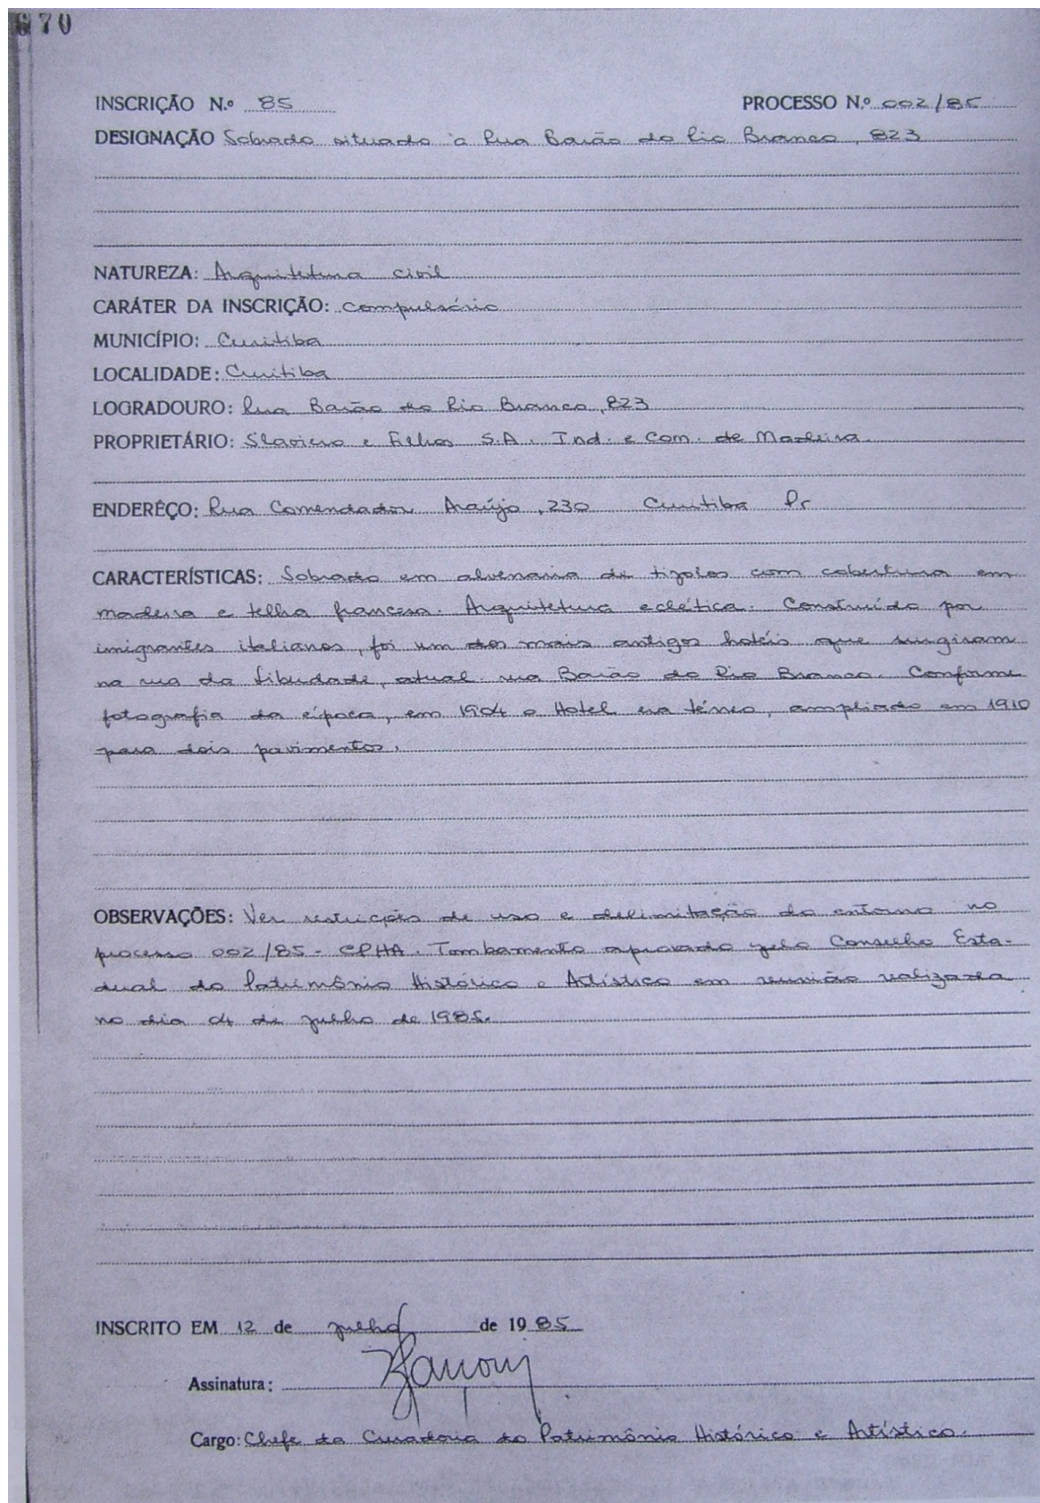 670
INSCRIÇÃO N.º 85 PROCESSO N.º 002/85
DESIGNAÇÃO Sobrado situado à Rua Barão do Rio Branco, 823
NATUREZA: Arquitetura civil
CARÁTER DA INSCRIÇÃO: compulsório
MUNICÍPIO: Curitiba
LOCALIDADE: Curitiba
LOGRADOURO: Rua Barão do Rio Branco, 823
PROPRIETÁRIO: Slaviero e Filhos S.A. Ind. e Com. de Madeira.
ENDERÊÇO: Rua Comendador Araújo, 230 Curitiba Pr
CARACTERÍSTICAS: Sobrado em alvenaria de tijolos com cobertura em
madeira e telha francesa. Arquitetura eclética. Construído por
imigrantes italianos, foi um dos mais antigos hotéis que surgiram
na rua da Liberdade, atual rua Barão do Rio Branco. Conforme
fotografia da época, em 1904 o Hotel era térreo, ampliado em 1910
para dois pavimentos.
OBSERVAÇÕES: Ver restrições de uso e delimitação do entorno no
processo 002/85 - CPHA. Tombamento aprovado pelo Conselho Esta-
dual do Patrimônio Histórico e Artístico em reunião realizada
no dia 04 de julho de 1985.
INSCRITO EM 12 de julho de 1985
Assinatura:
Cargo: Chefe da Curadoria do Patrimônio Histórico e Artístico.